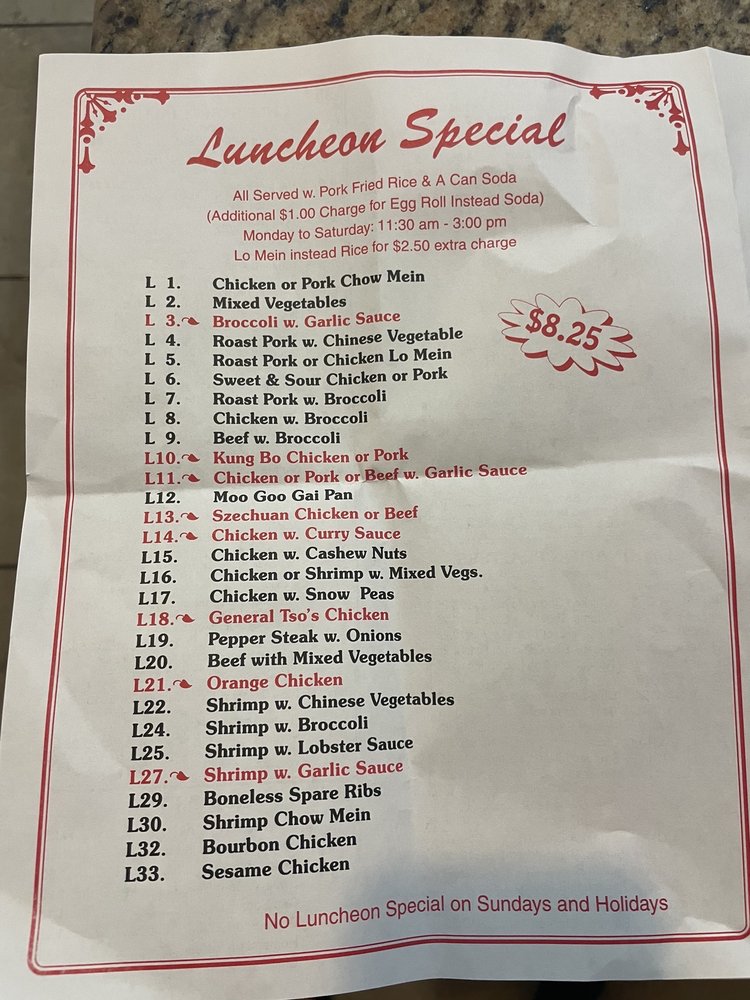 Luncheon Special
All Served w. Pork Fried Rice & A Can Soda
(Additional $1.00 Charge for Egg Roll Instead Soda)
Monday to Saturday: 11:30 am - 3:00 pm
Lo Mein instead Rice for $2.50 extra charge
$8.25
L 1. Chicken or Pork Chow Mein
L 2. Mixed Vegetables
L 3. Broccoli w. Garlic Sauce
L 4. Roast Pork w. Chinese Vegetable
L 5. Roast Pork or Chicken Lo Mein
L 6. Sweet & Sour Chicken or Pork
L 7. Roast Pork w. Broccoli
L 8. Chicken w. Broccoli
L 9. Beef w. Broccoli
L10. Kung Bo Chicken or Pork
L11. Chicken or Pork or Beef w. Garlic Sauce
L12. Moo Goo Gai Pan
L13. Szechuan Chicken or Beef
L14. Chicken w. Curry Sauce
L15. Chicken w. Cashew Nuts
L16. Chicken or Shrimp w. Mixed Vegs.
L17. Chicken w. Snow Peas
L18. General Tso's Chicken
L19. Pepper Steak w. Onions
L20. Beef with Mixed Vegetables
L21. Orange Chicken
L22. Shrimp w. Chinese Vegetables
L24. Shrimp w. Broccoli
L25. Shrimp w. Lobster Sauce
L27. Shrimp w. Garlic Sauce
L29. Boneless Spare Ribs
L30. Shrimp Chow Mein
L32. Bourbon Chicken
L33. Sesame Chicken
No Luncheon Special on Sundays and Holidays